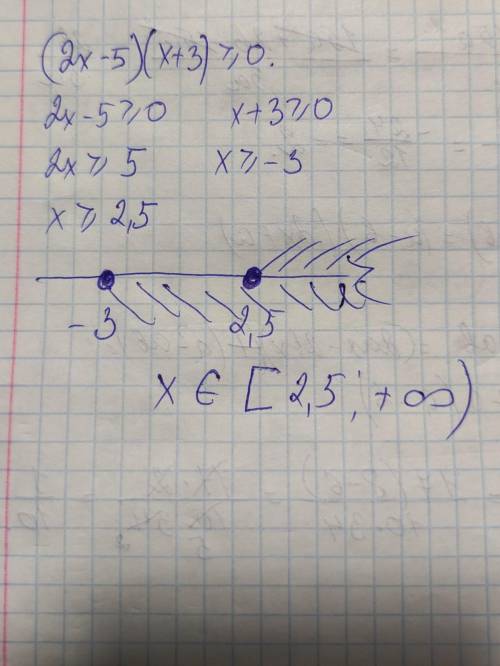 (2x-5)(x+3)⩾0.
2x-5⩾0 x+3⩾0
2x⩾5 x⩾-3
x⩾2,5
-3 2,5 x
x∈[2,5;+∞)